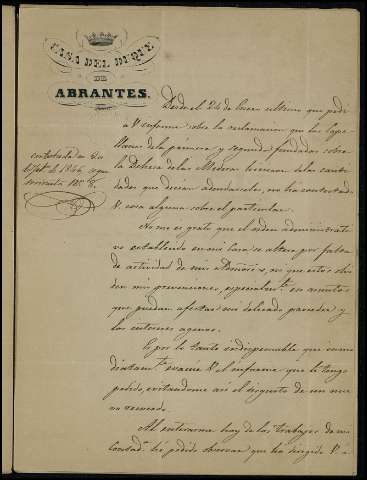 CASA DEL DUQUE
DE
ABRANTES.
contestada en 20
Desde el 24 de Enero ultimo que pedi
á V informe sobre la reclamacion que los Cape-
llanes de la primera y segunda fundadas sobre
la Dehesa de las Meseras hicieron de las canti-
dades que decian adeudarseles, no ha contestado
V. cosa alguna sobre el particular.
No me es grato que el orden administrati-
vo establecido en mi Casa se altere por falta
de actividad de mis Admores, ni que estos olvi-
den mis prevenciones, especialmte. en asuntos
que puedan afectar mi delicado proceder y
los intereses agenos.
Es por lo tanto indispensable que inme-
diatamte. evacue V. el informe que le tengo
pedido, evitandome asi el disgusto de un nue-
vo recuerdo.
Al enterarme hoy de los trabajos de mi
Contadª. he podido observar que ha dirigido V. á